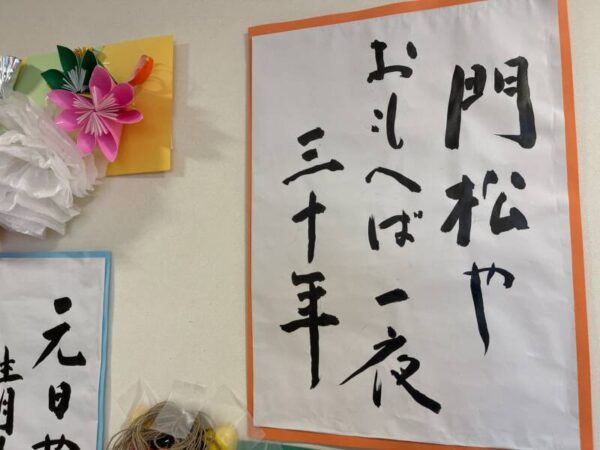 門松や
おもへば一夜
三十年
元日や